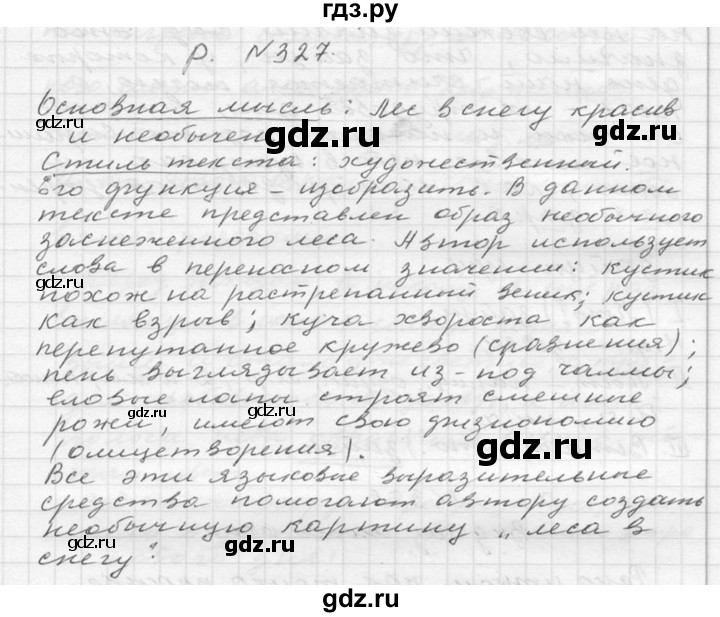 гдз.ру
р. №327.
Основная мысль: Лес в снегу красив
и необычен
Стиль текста: художественный.
Его функция – изобразить. В данном
тексте представлен образ необычного
заснеженного леса. Автор использует
слова в переносном значении: кустик
похож на растрепанный веник; кустик
как взрыв; куча хвороста как
перепутанное кружево (сравнения);
пень выглядывает из-под чалмы;
еловые лапы строят смешные
рожи, имеют свою физиономию
(олицетворения).
Все эти языковые выразительные
средства помогают автору создать
необычную картину „леса в
снегу“.
gdz.ru
gdz.ru
gdz.ru
gdz.ru
gdz.ru
gdz.ru
gdz.ru
gdz.ru
gdz.ru
gdz.ru
gdz.ru
gdz.ru
gdz.ru